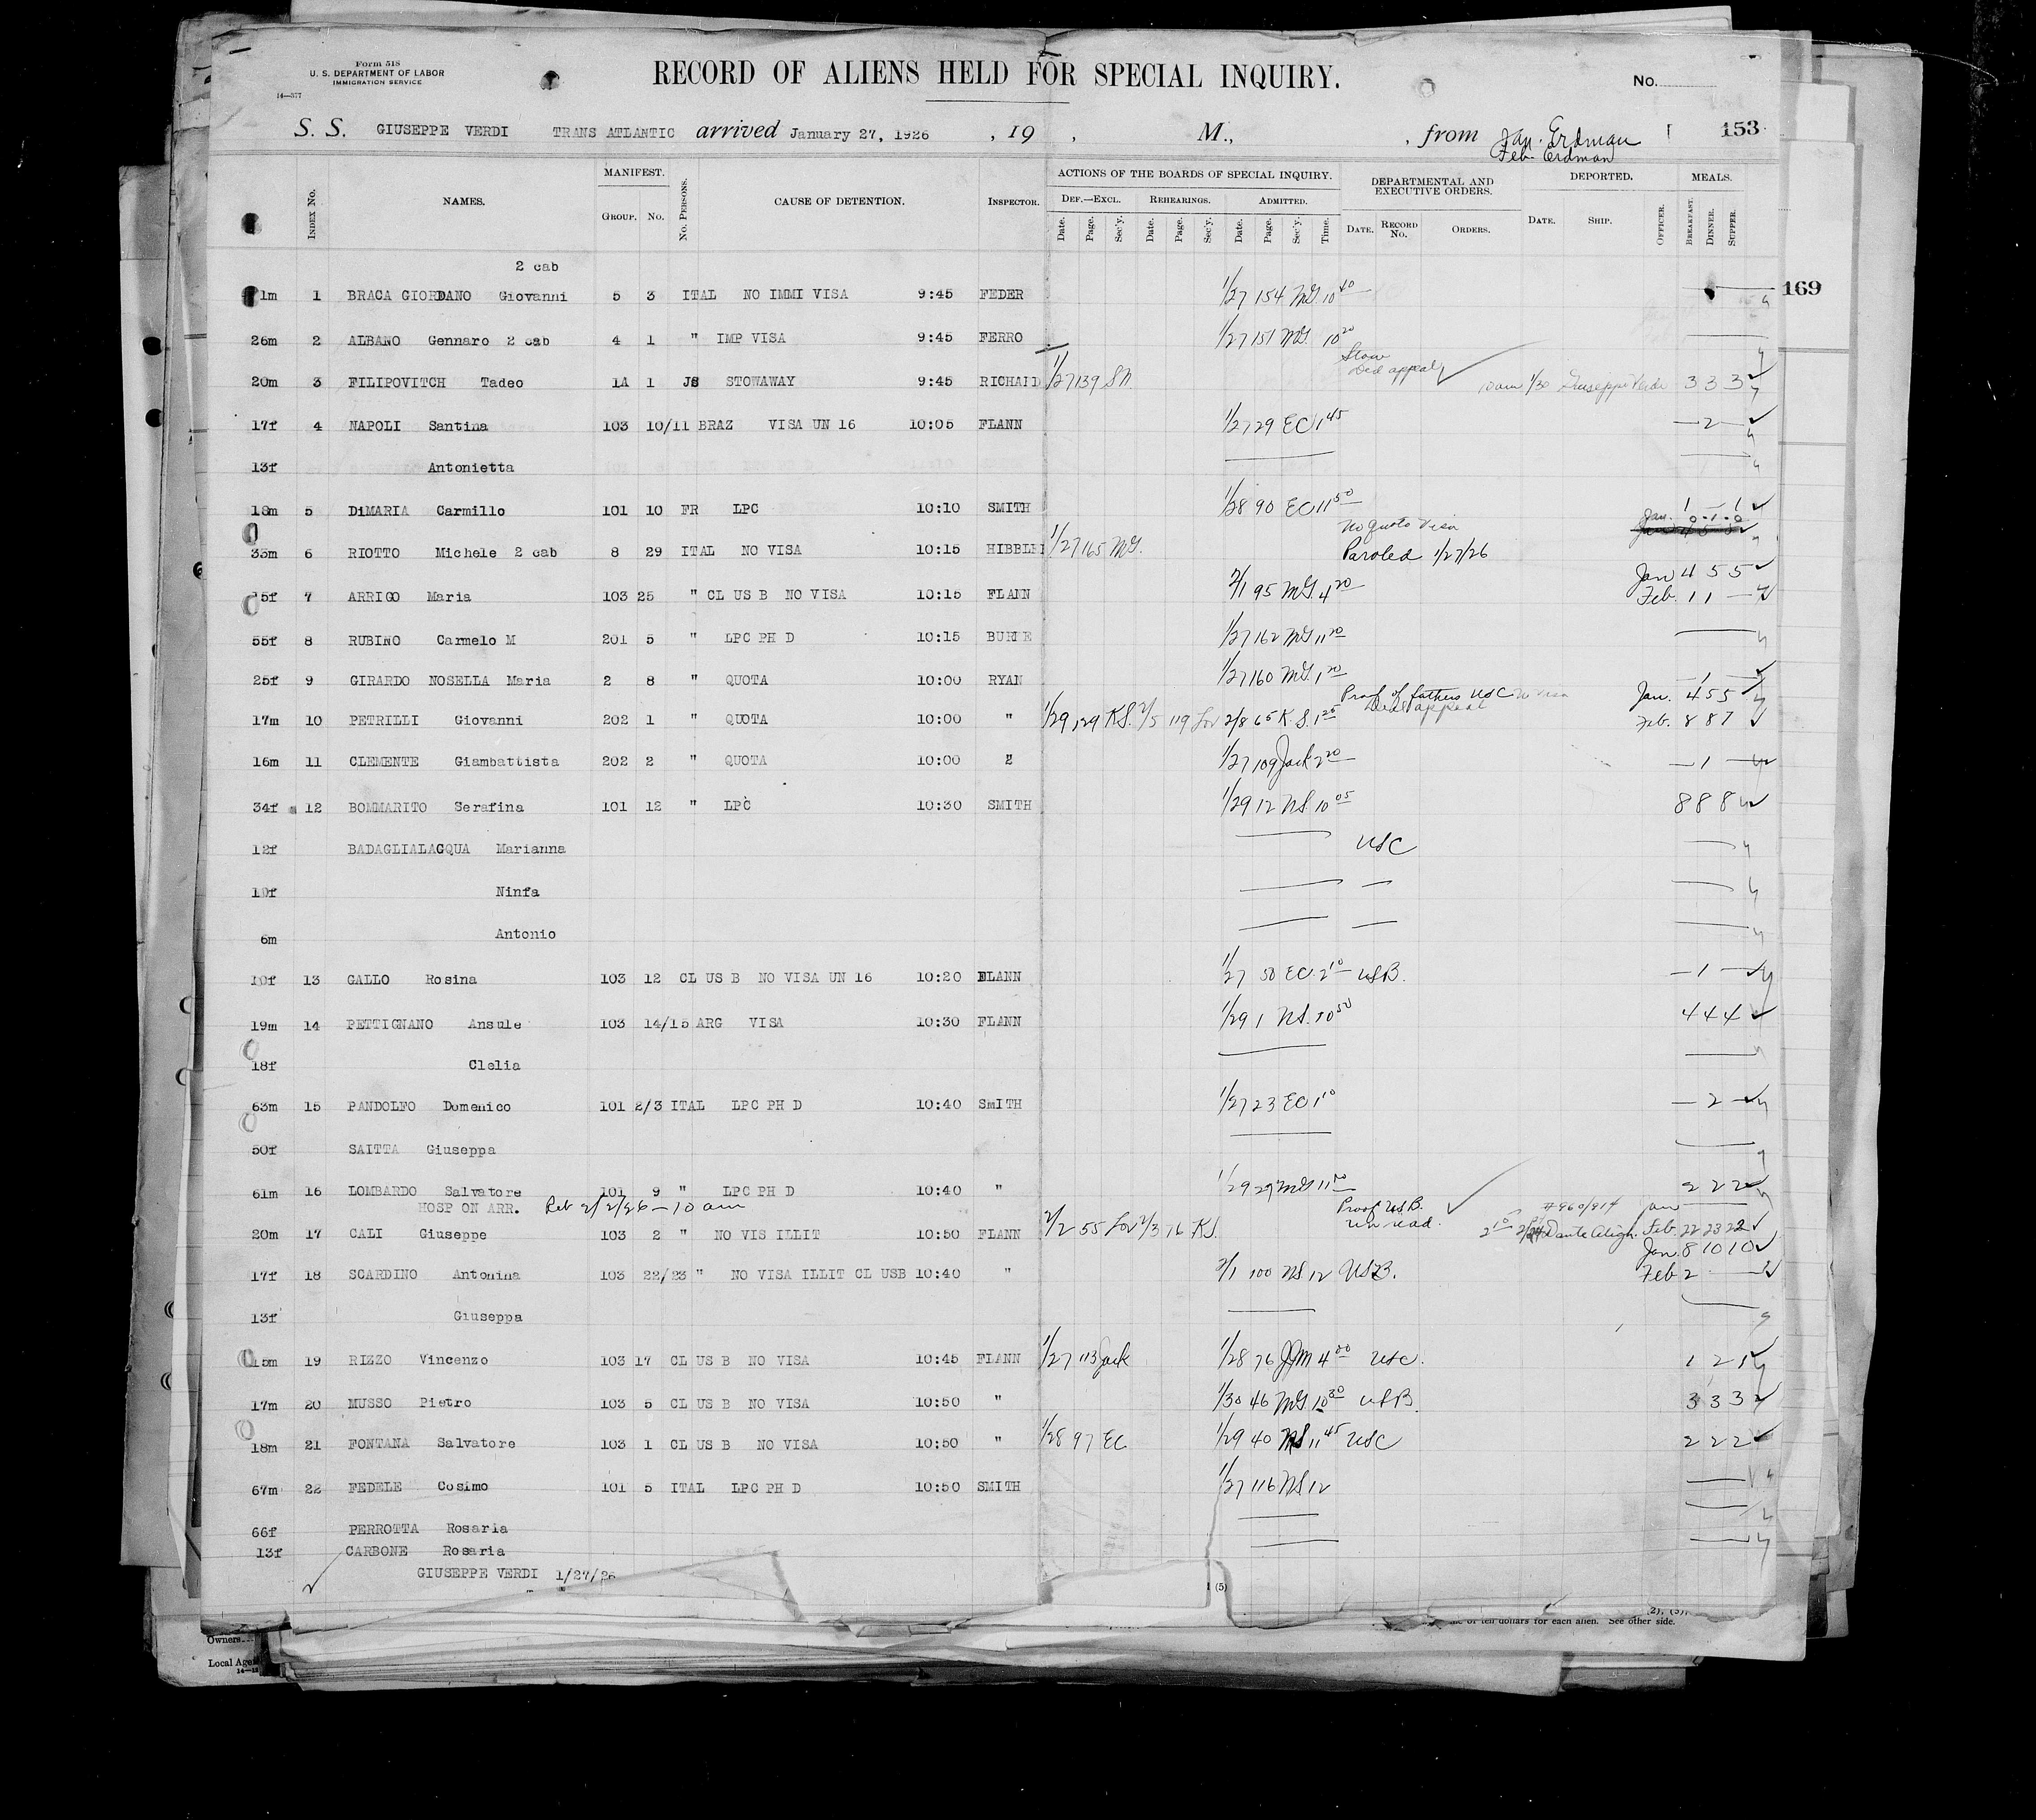 Form 518
U. S. DEPARTMENT OF LABOR
IMMIGRATION SERVICE
14—577
RECORD OF ALIENS HELD FOR SPECIAL INQUIRY.
No.
S. S. GIUSEPPE VERDI TRANS ATLANTIC arrived January 27, 1926 , 19 , M., , from Jan. Erdman 153
Feb. Erdman
INDEX No. NAMES. MANIFEST. GROUP. No. No. PERSONS. CAUSE OF DETENTION. INSPECTOR. ACTIONS OF THE BOARDS OF SPECIAL INQUIRY. DEPARTMENTAL AND EXECUTIVE ORDERS. DEPORTED. MEALS.
DEF.—EXCL. REHEARINGS. ADMITTED.
Date. Page. Sec'y. Date. Page. Sec'y. Date. Page. Sec'y. Time. DATE. RECORD No. ORDERS. DATE. SHIP. OFFICER. BREAKFAST. DINNER. SUPPER.
2 cab
1m 1 BRACA GIORDANO Giovanni 5 3 ITAL NO IMMI VISA 9:45 FEDER 1/27 154 MG. 10 40
169
26m 2 ALBANO Gennaro 2 cab 4 1 " IMP VISA 9:45 FERRO 1/27 151 MG. 10 20
Stow
Ded appeal
20m 3 FILIPOVITCH Tadeo 1A 1 JS STOWAWAY 9:45 RICHARD 1/27 139 SN. 10am 1/30 Giuseppe Verdi 3 3 3
17f 4 NAPOLI Santina 103 10/11 BRAZ VISA UN 16 10:05 FLANN 1/27 29 EC 1 45 — 2 —
13f Antonietta
18m 5 DiMARIA Carmillo 101 10 FR LPC 10:10 SMITH 1/28 90 EC 11 50 1 — 1
No quota Visa Jan. 0 - 1 - 0
35m 6 RIOTTO Michele 2 cab 8 29 ITAL NO VISA 10:15 HIBBLE 1/27 165 MG. Paroled 1/27/26
Jan 4 5 5
15f 7 ARRIGO Maria 103 25 " CL US B NO VISA 10:15 FLANN 2/1 95 MG. 4 20 Feb. 1 1 —
55f 8 RUBINO Carmelo M 201 5 " LPC PH D 10:15 BURKE 1/27 162 MG 11 20
25f 9 GIRARDO NOSELLA Maria 2 8 " QUOTA 10:00 RYAN 1/27 160 MG. 1 20 — 1 —
Proof of fathers USC no visa Jan. 4 5 5
Ded appeal
17m 10 PETRILLI Giovanni 202 1 " QUOTA 10:00 " 1/29 129 KS. 2/5 119 Lov 2/8 65 K.S. 1 25 Feb. 8 8 7
16m 11 CLEMENTE Giambattista 202 2 " QUOTA 10:00 " 1/27 109 Jack 2 20 — 1 —
34f 12 BOMMARITO Serafina 101 12 " LPC 10:30 SMITH 1/29 12 NS. 10 05 8 8 8
12f BADAGLIALACQUA Marianna USC
10f Ninfa
6m Antonio
10f 13 GALLO Rosina 103 12 CL US B NO VISA UN 16 10:20 FLANN 1/27 50 EC. 2 10 USB. — 1 —
19m 14 PETTIGNANO Ansule 103 14/15 ARG VISA 10:30 FLANN 1/29 1 NS. 10 50 4 4 4
18f Clelia
63m 15 PANDOLFO Domenico 101 2/3 ITAL LPC PH D 10:40 SmITH 1/27 23 EC 1 10 — 2 —
50f SAITTA Giuseppa
61m 16 LOMBARDO Salvatore 101 9 " LPC PH D 10:40 " 1/29 29 MG 11 2 2 2
HOSP ON ARR. Ret 2/2/26 – 10 am Proof US B. #960/914 Jan
un read.
20m 17 CALI Giuseppe 103 2 " NO VIS ILLIT 10:50 FLANN 2/2 55 Lov 2/3 76 KS. 2 10 Dante Aligh. Feb. 22 23 22
Jan. 8 10 10
17f 18 SCARDINO Antonina 103 22/23 " NO VISA ILLIT CL USB 10:40 " 2/1 100 NS 12 USB. Feb 2 —
13f Giuseppa
15m 19 RIZZO Vincenzo 103 17 CL US B NO VISA 10:45 FLANN 1/27 113 Jack 1/28 76 JJM 4 00 USC. 1 2 1
17m 20 MUSSO Pietro 103 5 CL US B NO VISA 10:50 " 1/30 46 MG. 10 30 USB. 3 3 3
18m 21 FONTANA Salvatore 103 1 CL US B NO VISA 10:50 " 1/28 97 EC 1/29 40 NS 11 45 USC 2 2 2
67m 22 FEDELE Cosimo 101 5 ITAL LPC PH D 10:50 SMITH 1/27 116 NS 12
66f PERROTTA Rosaria
13f CARBONE Rosaria
GIUSEPPE VERDI 1/27/26
(5)
2), (3),
of ten dollars for each alien. See other side.
Owners
Local Age